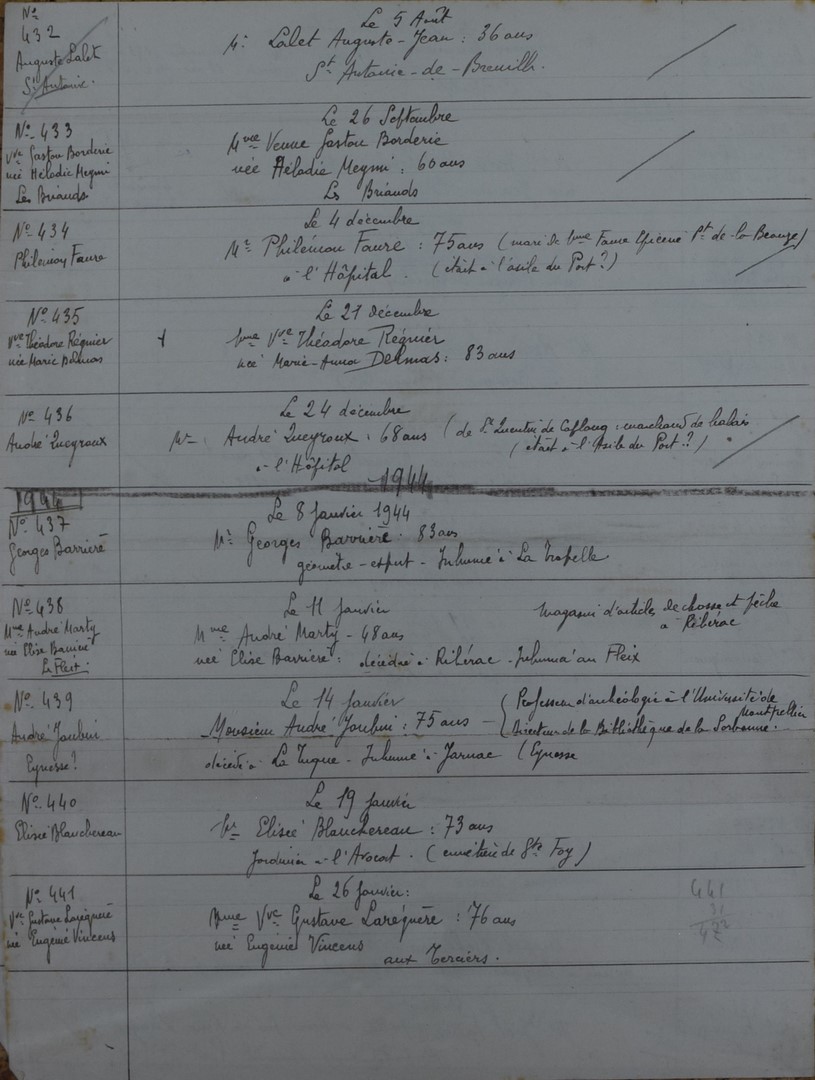 No
432
Auguste Lalet
St Antoine.
Le 5 Août
Mr Lalet Auguste-Jean : 36 ans
St Antoine-de-Breuilh.
No 433
Vve Gaston Borderie
née Hélodie Meymi
Les Briands
Le 26 Septembre
Mme Veuve Gaston Borderie
née Hélodie Meymi : 60 ans
Les Briands
No 434
Philémon Faure
Le 4 décembre
Mr Philémon Faure : 75 ans (mari de Mme Faure Pt de la Beauze)
à l'Hôpital. (était à l'asile du Port ?)
No 435
Vve Théodore Régnier
née Marie Delmas
Le 21 décembre
Mme Vve Théodore Régnier
née Marie-Anna Delmas : 83 ans
No 436
André Queyroux
Le 24 décembre
Mr André Queyroux : 68 ans (de St Quentin de Caplong : marchand de balais
à l'Hôpital (était à l'Asile du Port ?)
1944
1944
No 437
Georges Barrière
Le 8 Janvier 1944
Mr Georges Barrière. 83 ans
géomètre-expert - Inhumé à La
No 438
Mme André Marty
née Elise Barrière
Le Fleix.
Le 11 Janvier
Mme André Marty - 48 ans
née Elise Barrière : décédée à Ribérac. Inhumée au Fleix
magasin d'articles de chasse et pêche
à Ribérac
No 439
André Joubin
Eynesse ?
Le 14 Janvier
Monsieur André Joubin : 75 ans - (Professeur d'archéologie à l'Université de Montpellier
Directeur de la Bibliothèque de la Sorbonne.
décédé à La Tuque - Inhumé à Jarnac (Eynesse
No 440
Elisée Blanchereau
Le 19 Janvier
Mr Elisée Blanchereau : 73 ans
Jardinier à l'Avocat. (cimetière de Ste Foy)
No 441
Vve Gustave Laréquère
née Eugénie Vincens
Le 26 Janvier :
Mme Vve Gustave Laréguère : 76 ans
née Eugénie Vincens
aux Terciers.
441